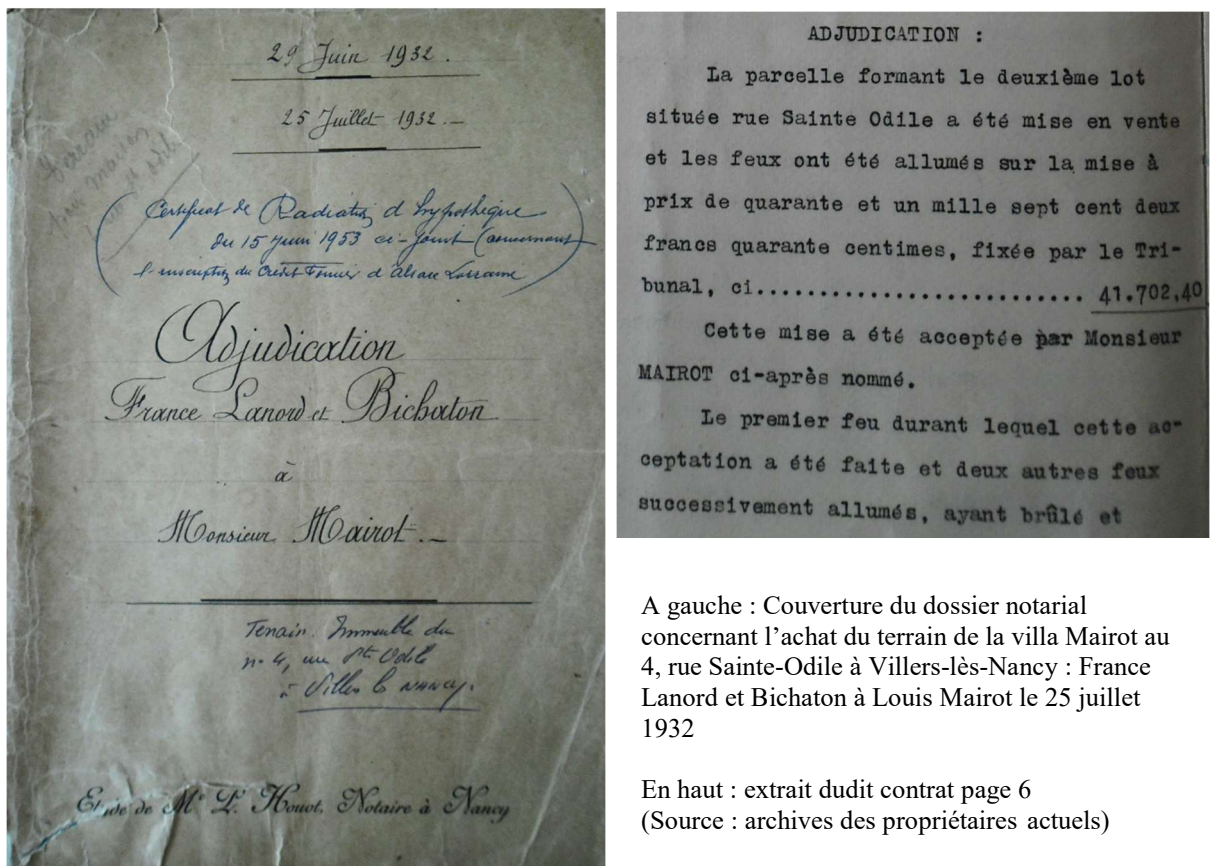 29 Juin 1932.
25 Juillet 1932.—
(Certificat de Radiation d'hypothèque
du 15 juin 1953 ci-joint (concernant
l'inscription du Crédit Foncier d'Alsace Lorraine)
Adjudication
France Lanord et Bichaton
à
Monsieur Mairot.—
Terrain. Immeuble du
n° 4, rue Ste Odile
à Villers les NANCY.
Etude de Me L. Houot, Notaire à Nancy
ADJUDICATION :
La parcelle formant le deuxième lot
située rue Sainte Odile a été mise en vente
et les feux ont été allumés sur la mise à
prix de quarante et un mille sept cent deux
francs quarante centimes, fixée par le Tri-
bunal, ci........................... 41.702,40
Cette mise a été acceptée par Monsieur
MAIROT ci-après nommé.
Le premier feu durant lequel cette ac-
ceptation a été faite et deux autres feux
successivement allumés, ayant brûlé et
A gauche : Couverture du dossier notarial
concernant l’achat du terrain de la villa Mairot au
4, rue Sainte-Odile à Villers-lès-Nancy : France
Lanord et Bichaton à Louis Mairot le 25 juillet
1932
En haut : extrait dudit contrat page 6
(Source : archives des propriétaires actuels)